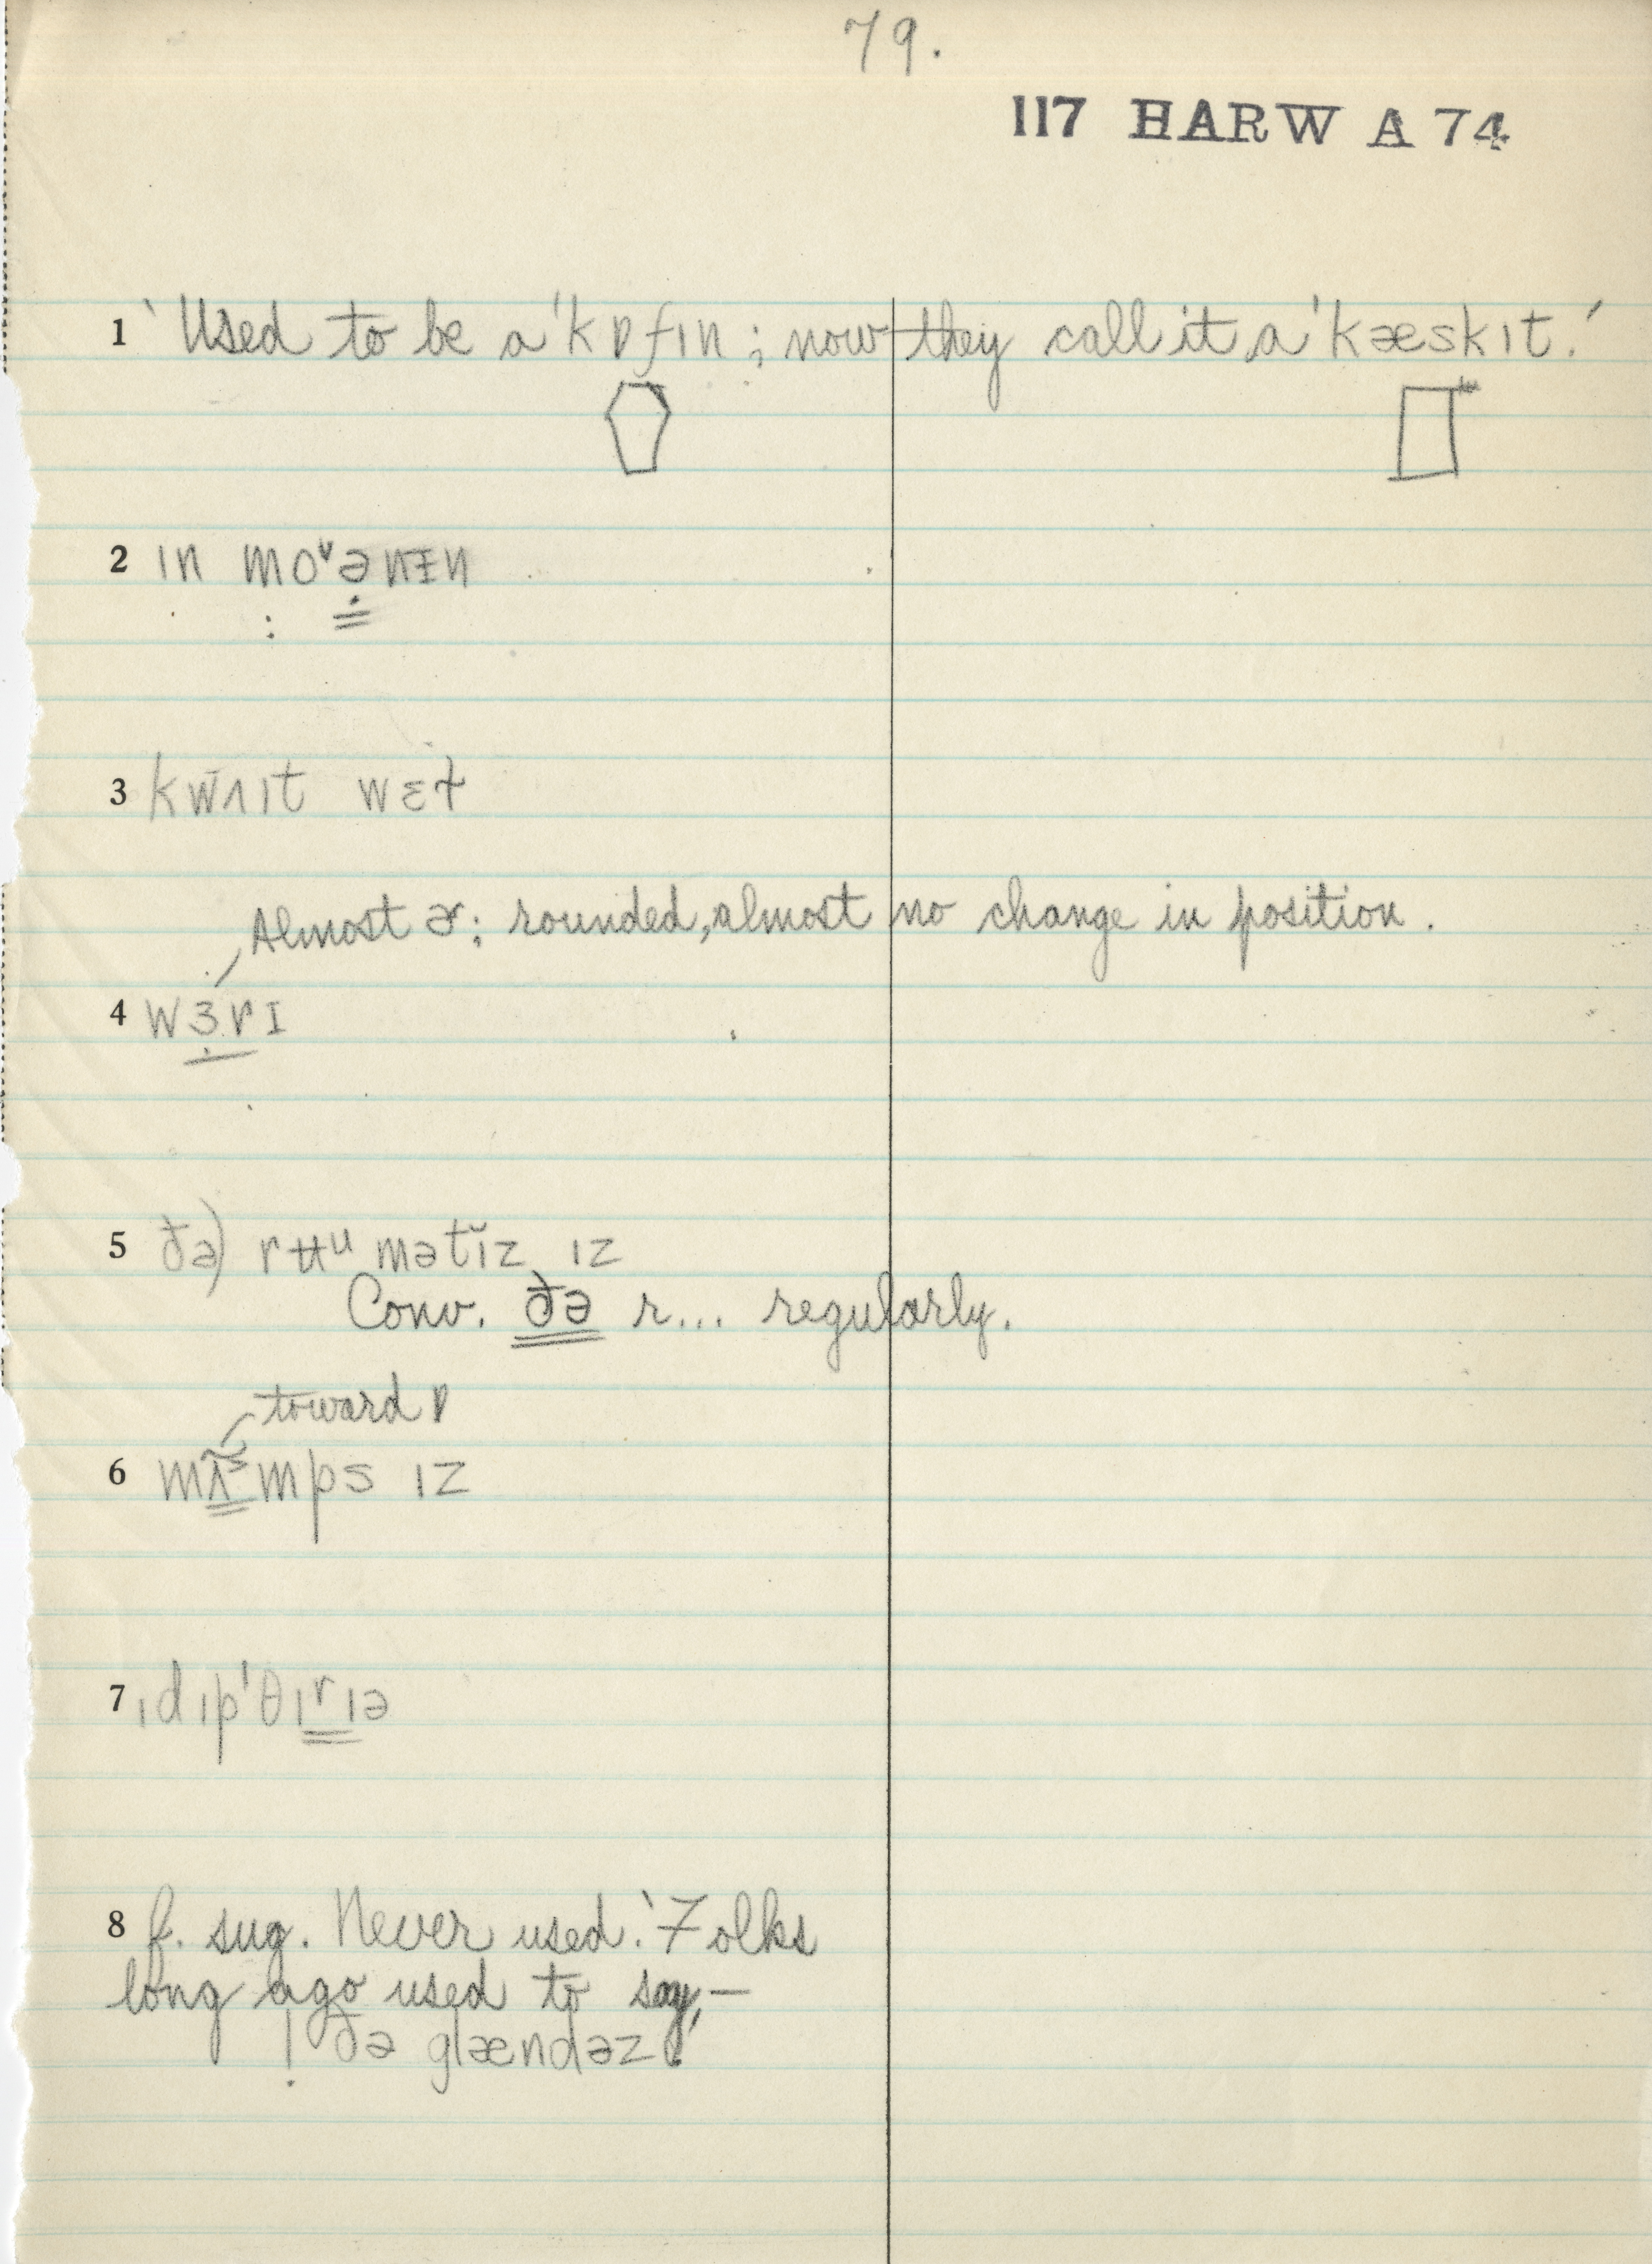 79.
117 HARW A 74
1 ‵Used to be a 'kɒfɪn ; now they call it a 'kæskɪt.′
2 ɪn moᵛənɪ̵n
3 kwʌɪt wɛt
Almost ɚ: rounded, almost no change in position.
4 wɜrɪ
5 ðə) rʉᵘmətĭz ɪz
Conv. ðə r... regularly.
toward ɒ
6 mps ɪz
7 ɪdɪp'θɪrɪə
8 f. sug. Never used. ‵Folks
long ago used to say,—
! ðə glændəz